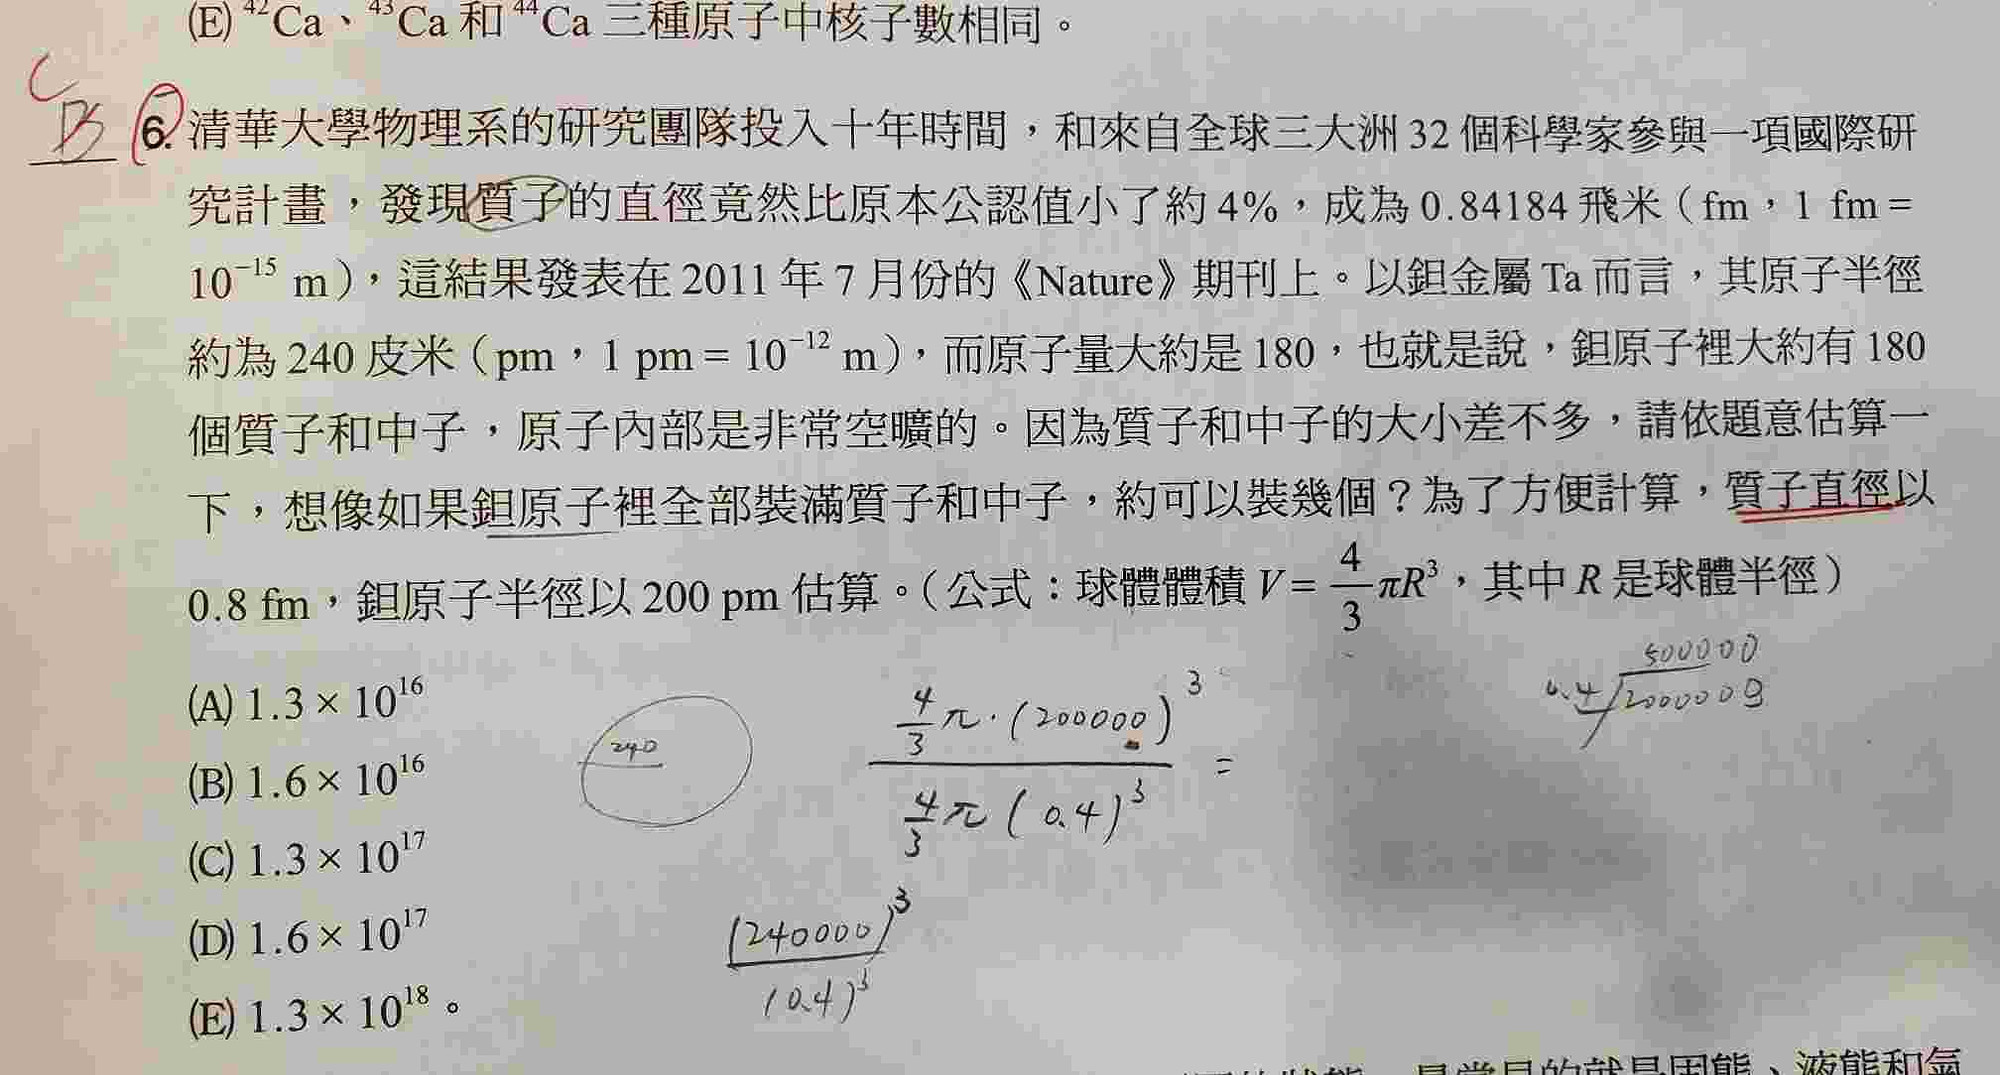 (E) ⁴²Ca、⁴³Ca 和 ⁴⁴Ca 三種原子中核子數相同。
C
B 6. 清華大學物理系的研究團隊投入十年時間，和來自全球三大洲 32 個科學家參與一項國際研
究計畫，發現質子的直徑竟然比原本公認值小了約 4%，成為 0.84184 飛米（fm，1 fm =
10⁻¹⁵ m），這結果發表在 2011 年 7 月份的《Nature》期刊上。以鉭金屬 Ta 而言，其原子半徑
約為 240 皮米（pm，1 pm = 10⁻¹² m），而原子量大約是 180，也就是說，鉭原子裡大約有 180
個質子和中子，原子內部是非常空曠的。因為質子和中子的大小差不多，請依題意估算一
下，想像如果鉭原子裡全部裝滿質子和中子，約可以裝幾個？為了方便計算，質子直徑以
0.8 fm，鉭原子半徑以 200 pm 估算。（公式：球體體積 V = 4/3 πR³，其中 R 是球體半徑）
(A) 1.3 × 10¹⁶
(B) 1.6 × 10¹⁶
(C) 1.3 × 10¹⁷
(D) 1.6 × 10¹⁷
(E) 1.3 × 10¹⁸。
240
4/3 π·(200000)³
4/3 π (0.4)³
=
500000
0.4
(240000)³
(0.4)³